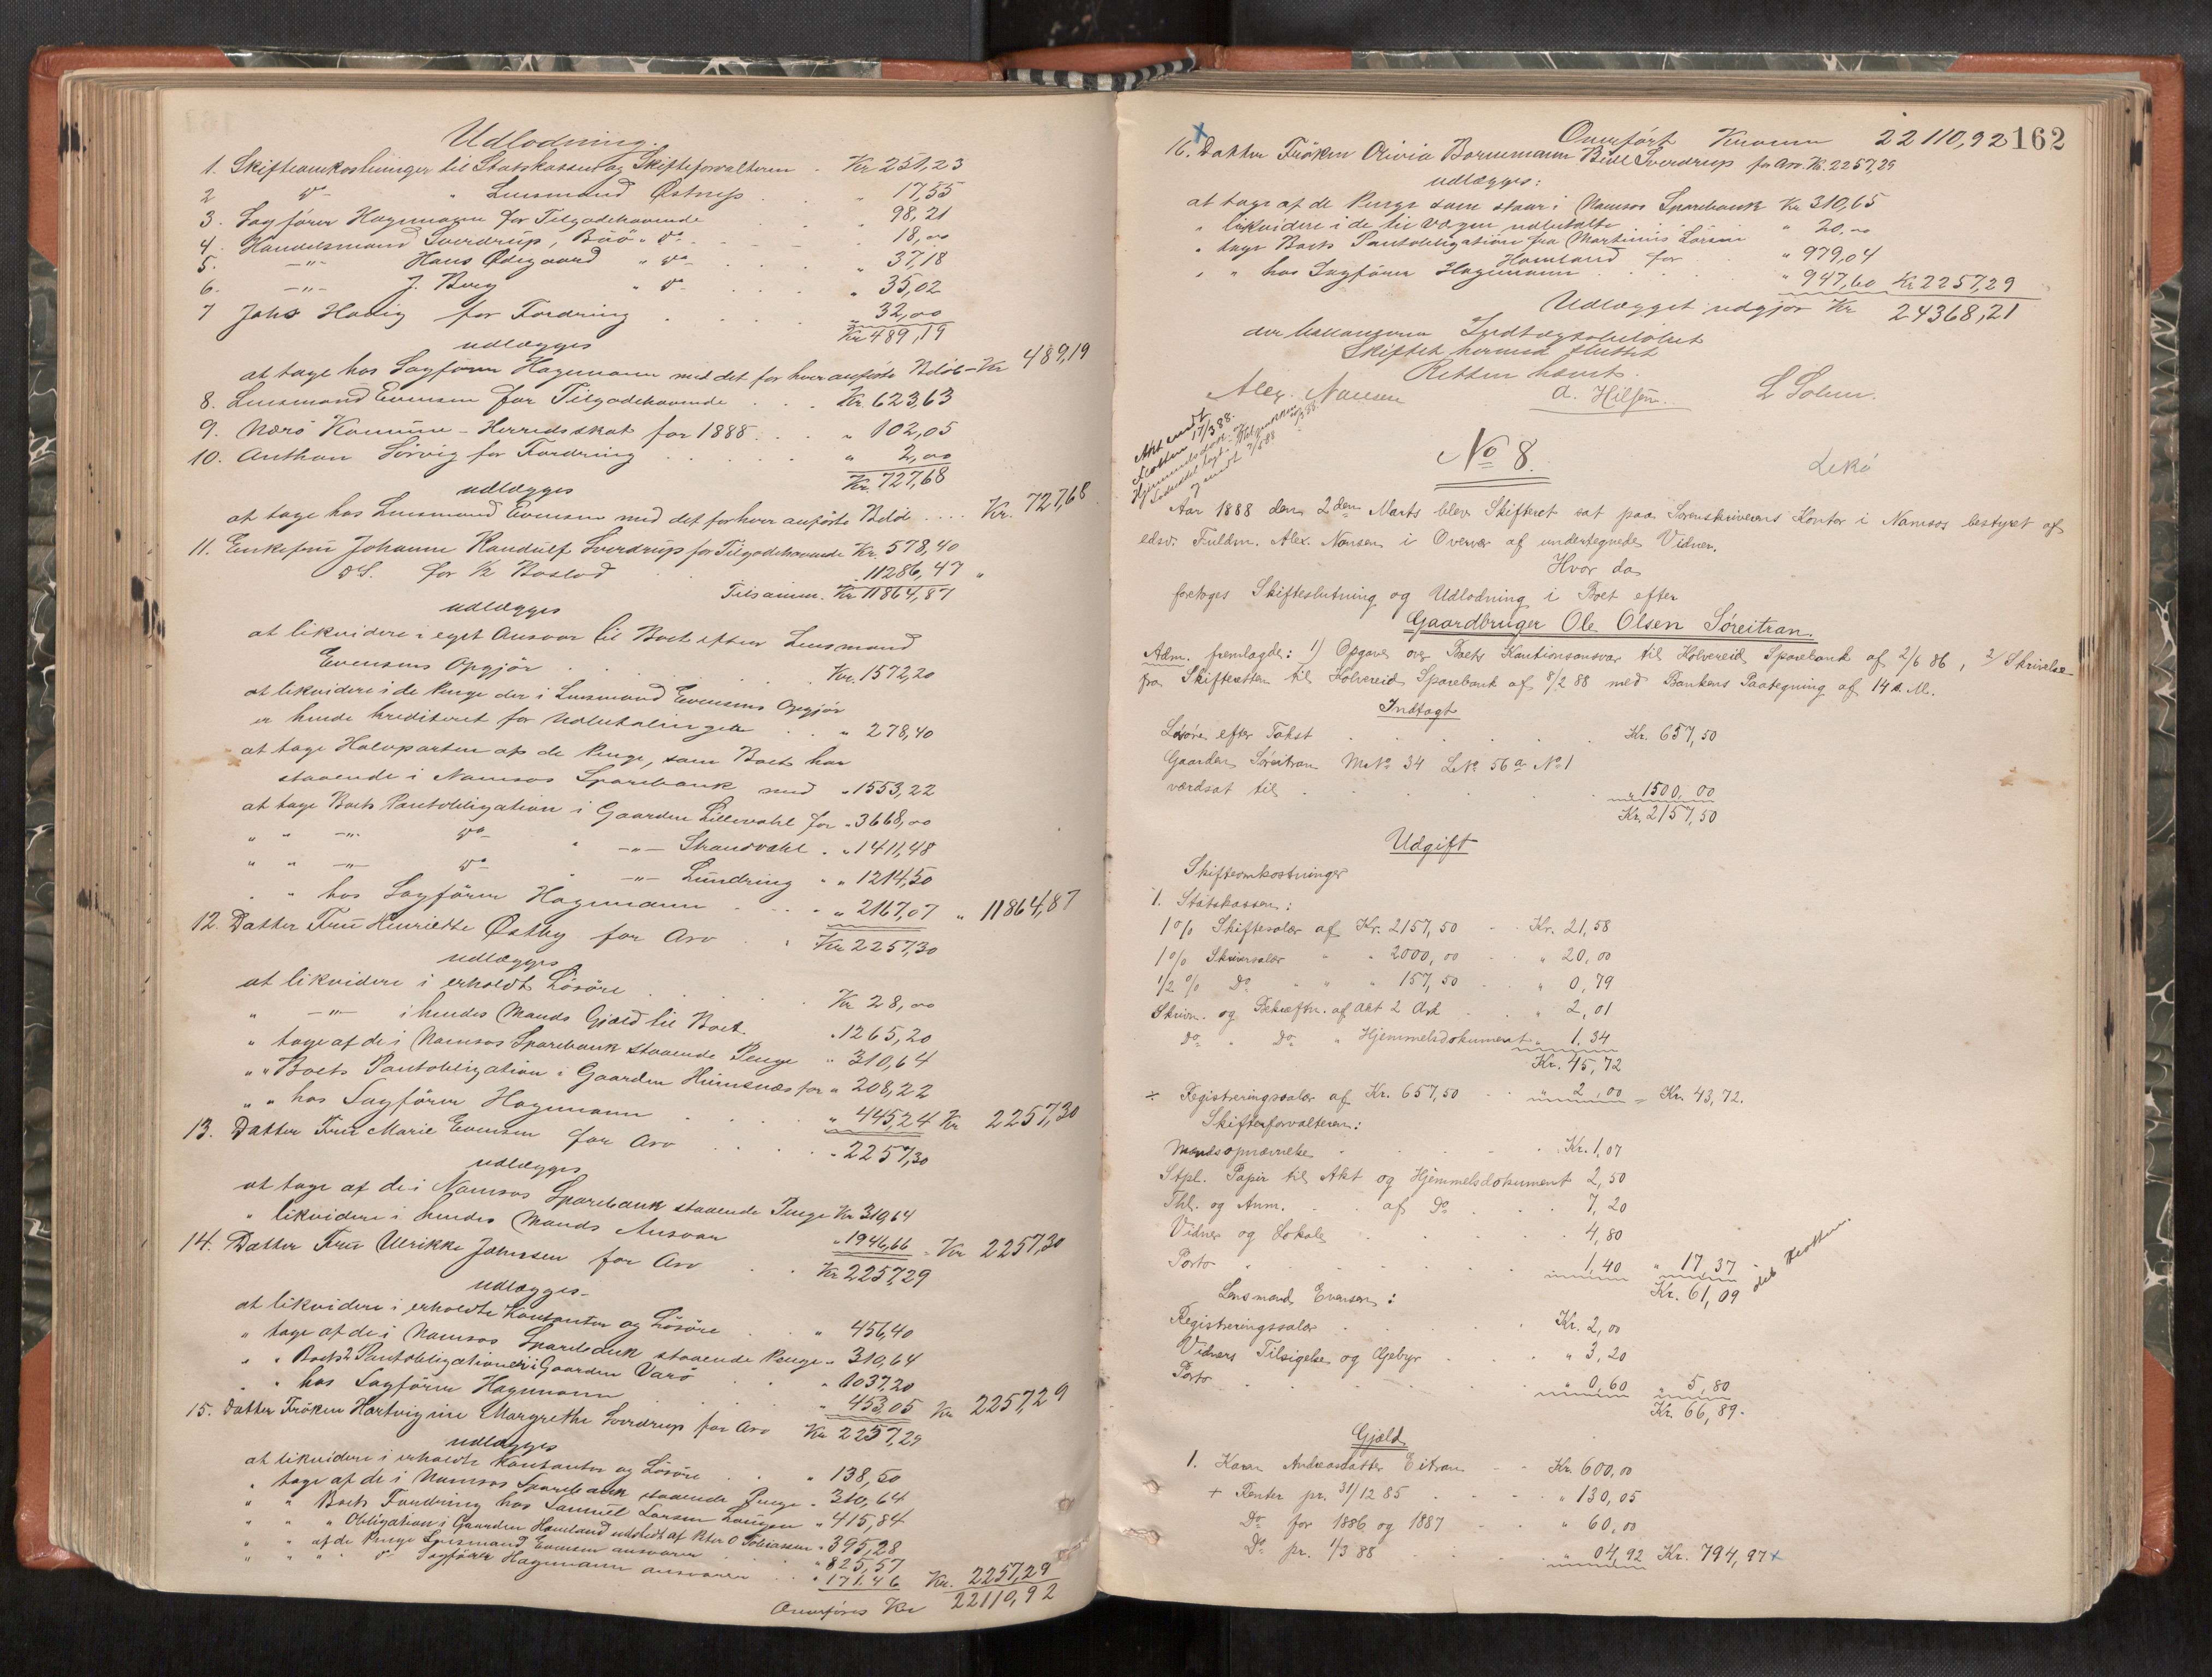 Udlodning.
1. Skifteomkostninger til Statskassen og Skifteforvalteren . Kr 251,23
2 do " Lensmand Østnes . . " 17,55
3. Sagfører Hagemann for Tilgodehavende . . " 98,21
4. Handelsmand Sverdrup, Böö " do . . . " 18,00
5. —"— Hans Ødegaard " do . . . " 37,18
6. —"— J. Berg " do . . . " 35,02
7 Johs Havig for Fordring . . . . " 32,00
Kr 489,19
udlægges
at tage hos Sagfører Hagemann med det for hver anførte Beløb – Kr 489,19
8. Lensmand Evensen for Tilgodehavende . . . Kr. 623,63
9. Nærö Komune – Herredsskat for 1888 . . . " 102,05
10. Anthon Sörvig for Fordring . . . . " 2,00
Kr. 727,68
udlægges
at tage hos Lensmand Evensen med det for hver anførte Beløb .... Kr. 727,68
11. Enkefru Johanne Randulf Sverdrup for Tilgodehavende Kr. 578,40
dS. for 1/2 Boslod . . 11286,47 "
Tilsammen. Kr 11864,87
udlægges
at likvidere i eget Ansvar til Boet efter Lensmand
Evensens Opgjör . . . . . . Kr. 1572,20
at likvidere i de Penge der i Lensmand Evensens Opgjör
er hende krediteret for Udbetalinger . . " 278,40
at tage Halvparten af de Penge, som Boet har
staaende i Namsos Sparebank med " 1553,22
at tage Boets Pantobligation i Gaarden Lillevahl for " 3668,00
" " —"— do " —"— Strandvahl . " 1411,48
" " —"— do " —"— Lundring " " 1214,50
" " hos Sagfører Hagemann . . . . " 2167,07 " 11864,87
12. Datter Fru Henriette Østby for Arv . . Kr 2257,30
udlægges
at likvidere i erholdt Lösöre . . . . Kr 28,00
" —"— i hendes Mands Gjæld til Boet . " 1265,20
" tage af de i Namsos Sparebank staaende Penge " 310,64
" " Boets Pantobligation i Gaarden Huusnæs for " 208,22
" " hos Sagfører Hagemann . . . " 445,24 Kr 2257,30
13. Datter Fru Marie Evensen for Arv . . . " 2257,30
udlægges
at tage af de i Namsos Sparebank staaende Penge Kr 310,64
" likvidere i hendes Mands Ansvar . " 1946,66 = Kr 2257,30
14. Datter Fru Ulrikke Johnsen for Arv . . Kr 2257,29
udlægges–
at likvidere i erholdte Kontanter og Lösöre . . " 456,40
" tage af de i Namsos Sparebank staaende Penge " 310,64
" " Boets 2 Pantobligationer i Gaarden Varö . . " 1037,20
" " hos Sagfører Hagemann . . . " 453,05 Kr 2257,29
15. Datter Fröken Hartvigine Margrethe Sverdrup for Arv Kr 2257,29
udlægges
at likvidere i erholdte Kontanter og Lösöre . . " 138,50
" tage af de i Namsos Sparebank staaende Penge " 310,64
" " Boets Fordring hos Samuel Larsen " 415,84
" " " Obligation i Gaarden Homland udstedt af Peter O Tobiassen " 395,28
" " af de Penge Lensmand Evensen ansvarer . " 825,57
" " " " do Sagfører Hagemann ansvarer . . " 171,46 Kr. 2257,29
Overföres Kr 22110,92
Overført Kroner 22110,92
162
16. Datter Fröken Olivia Bornemann Bull Sverdrup for Arv. Kr. 2257,29
udlægges:
at tage af de Penge som staar i Namsos Sparebank Kr 310,65
" likvidere i de til Vogn udbetalte . . " 20,00
" tage Boets Pantobligation fra Martinus Larsen
Homland for . . " 979,04
" " hos Sagfører Hagemann . . . . " 947,60 Kr 2257,29
Udlægget udgjör Kr 24368,21
der balancerer Indtægtsbeløbet
Skiftet hermed sluttet
Retten hævet.
Alex. Nansen A. Hilsen. L Solem.
Akt sendt
17/3 88.
No 8.
Lekö
Aar 1888 den 2den Marts blev Skifteret sat paa Sorenskriverens Kontor i Namsos bestyret af
edsv. Fuldm. Alex. Nansen i Overvær af undertegnede Vidner.
Hvor da
foretoges Skifteslutning og Udlodning i Boet efter
Gaardbruger Ole Olsen Søreitran.
Adm. fremlagde: 1) Opgave over Boets Kautionsansvar til Kolvereid Sparebank af 2/6 86, 2/ Skrivelse
fra Skifteretten til Kolvereid Sparebank af 8/2 88 med Bankens Paategning af 14 d. M.
Indtægt
Løsøre efter Takst . . . . . Kr. 657,50
Gaarden Søreitran M.No 34 L.No 56a No 1
værdsat til . . . . . " 1500,00
Kr. 2157,50
Udgift
Skifteomkostninger
1. Statskassen:
1% Skiftesalær af Kr. 2157,50 - - Kr. 21,58
1% Skriversalær " " 2000,00 - - " 20,00
1/2 % Do " " 157,50 - - " 0,79
Skrivn. og Bekræftn. af Akt 2 Ark . . " 2,01
Do " Do " Hjemmelsdokument " 1,34
Kr. 45,72
÷ Registreringssalær af Kr. 657,50 - - " 2,00 = Kr. 43,72.
Skifteforvalteren:
Mandsopnævnelse . . . . Kr. 1,07
Stpl. Papir til Akt og Hjemmelsdokument 2,50
Thl. og Anm. . . af Do . . . 7,20
Vidner og Lokale . . . . . 4,80
Porto . . . . . . 1,40 " 17,37
Kr. 61,09
Lensmand Evensen:
Registreringssalær . . . . Kr. 2,00
Vidners Tilsigelse og Gebyr . . . " 3,20
Porto . . . . . . " 0,60 " 5,80
Kr. 66,89.
Gjæld
1. Karen Andreasdatter Eitran - - Kr. 600,00
+ Renter pr. 31/12 85 . . . " 130,05
Do for 1886 og 1887 - - " 60,00
Do pr. 1/3 88 . . . . " 04,92 Kr. 794,97 x